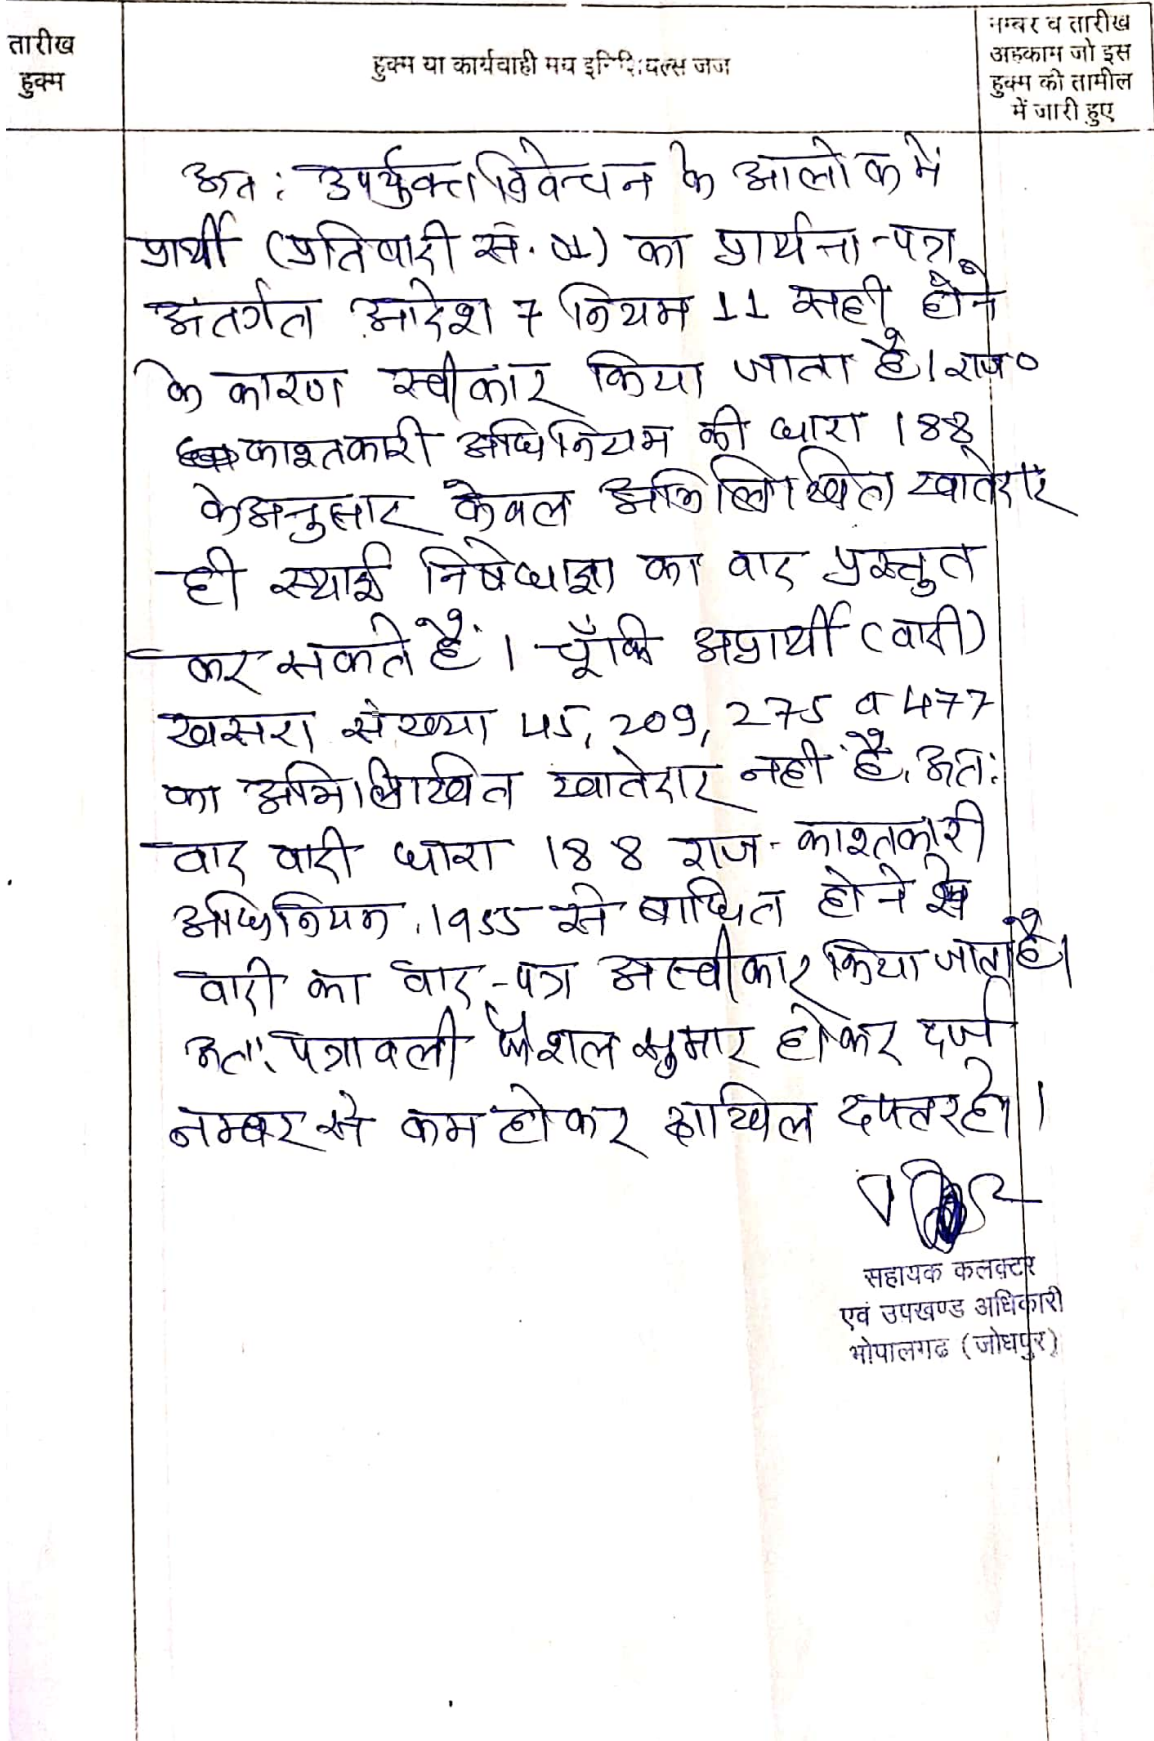 तारीख
हुक्म
हुक्म या कार्यवाही मय इनिशियल्स जज
नम्बर व तारीख
अहकाम जो इस
हुक्म की तामील
में जारी हुए
अत: उपर्युक्त विवेचन के आलोक में
प्रार्थी (प्रतिवादी सं. 01) का प्रार्थना-पत्र
अंतर्गत आदेश 7 नियम 11 सही होने
के कारण स्वीकार किया जाता है। राज०
काश्तकारी अधिनियम की धारा 188
के अनुसार केवल अभिलिखित खातेदार
ही स्थाई निषेधाज्ञा का वाद प्रस्तुत
कर सकते हैं। चूँकि अप्रार्थी (वादी)
खसरा संख्या 45, 209, 275 व 477
का अभिलिखित खातेदार नहीं है, अत:
वाद वादी धारा 188 राज. काश्तकारी
अधिनियम, 1955 से बाधित होने से
वादी का वाद-पत्र अस्वीकार किया जाता है।
अत: पत्रावली फैशल सुमार होकर दर्ज
नम्बर से कम होकर दाखिल दफ्तर हो।
सहायक कलक्टर
एवं उपखण्ड अधिकारी
भोपालगढ (जोधपुर)